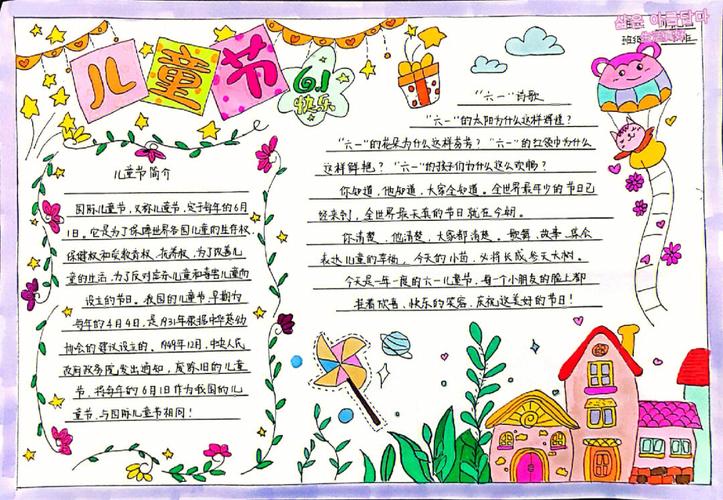 儿童节
6.1
快乐
삶은 아름답다
班级
儿童节简介
国际儿童节，又称儿童节，定于每年的6月
1日。它是为了保障世界各国儿童的生存权、
保健权和受教育权、抚养权，为了改善儿
童的生活，为了反对虐杀儿童和毒害儿童而
设立的节日。我国的儿童节，早期为
每年的4月4日，是1931年根据中华慈幼
协会的建议设立的。1949年12月，中央人民
政府政务院发出通知，废除旧的儿童
节，将每年的6月1日作为我国的儿
童节，与国际儿童节相同！
"六一"诗歌
"六一"的太阳为什么这样辉煌？
"六一"的花朵为什么这样芬芳？"六一"的红领巾为什么
这样鲜艳？"六一"的孩子们为什么这么欢畅？
你知道，他知道，大家全知道。全世界最年少的节日已
经来到，全世界最天真的节日就在今朝。
你清楚，他清楚，大家都清楚。歌舞、故事、集会
表达儿童的幸福，今天的小苗，必将长成参天大树。
今天是一年一度的六一儿童节，每一个小朋友的脸上都
挂着欣喜、快乐的笑容，庆祝这美好的节日！